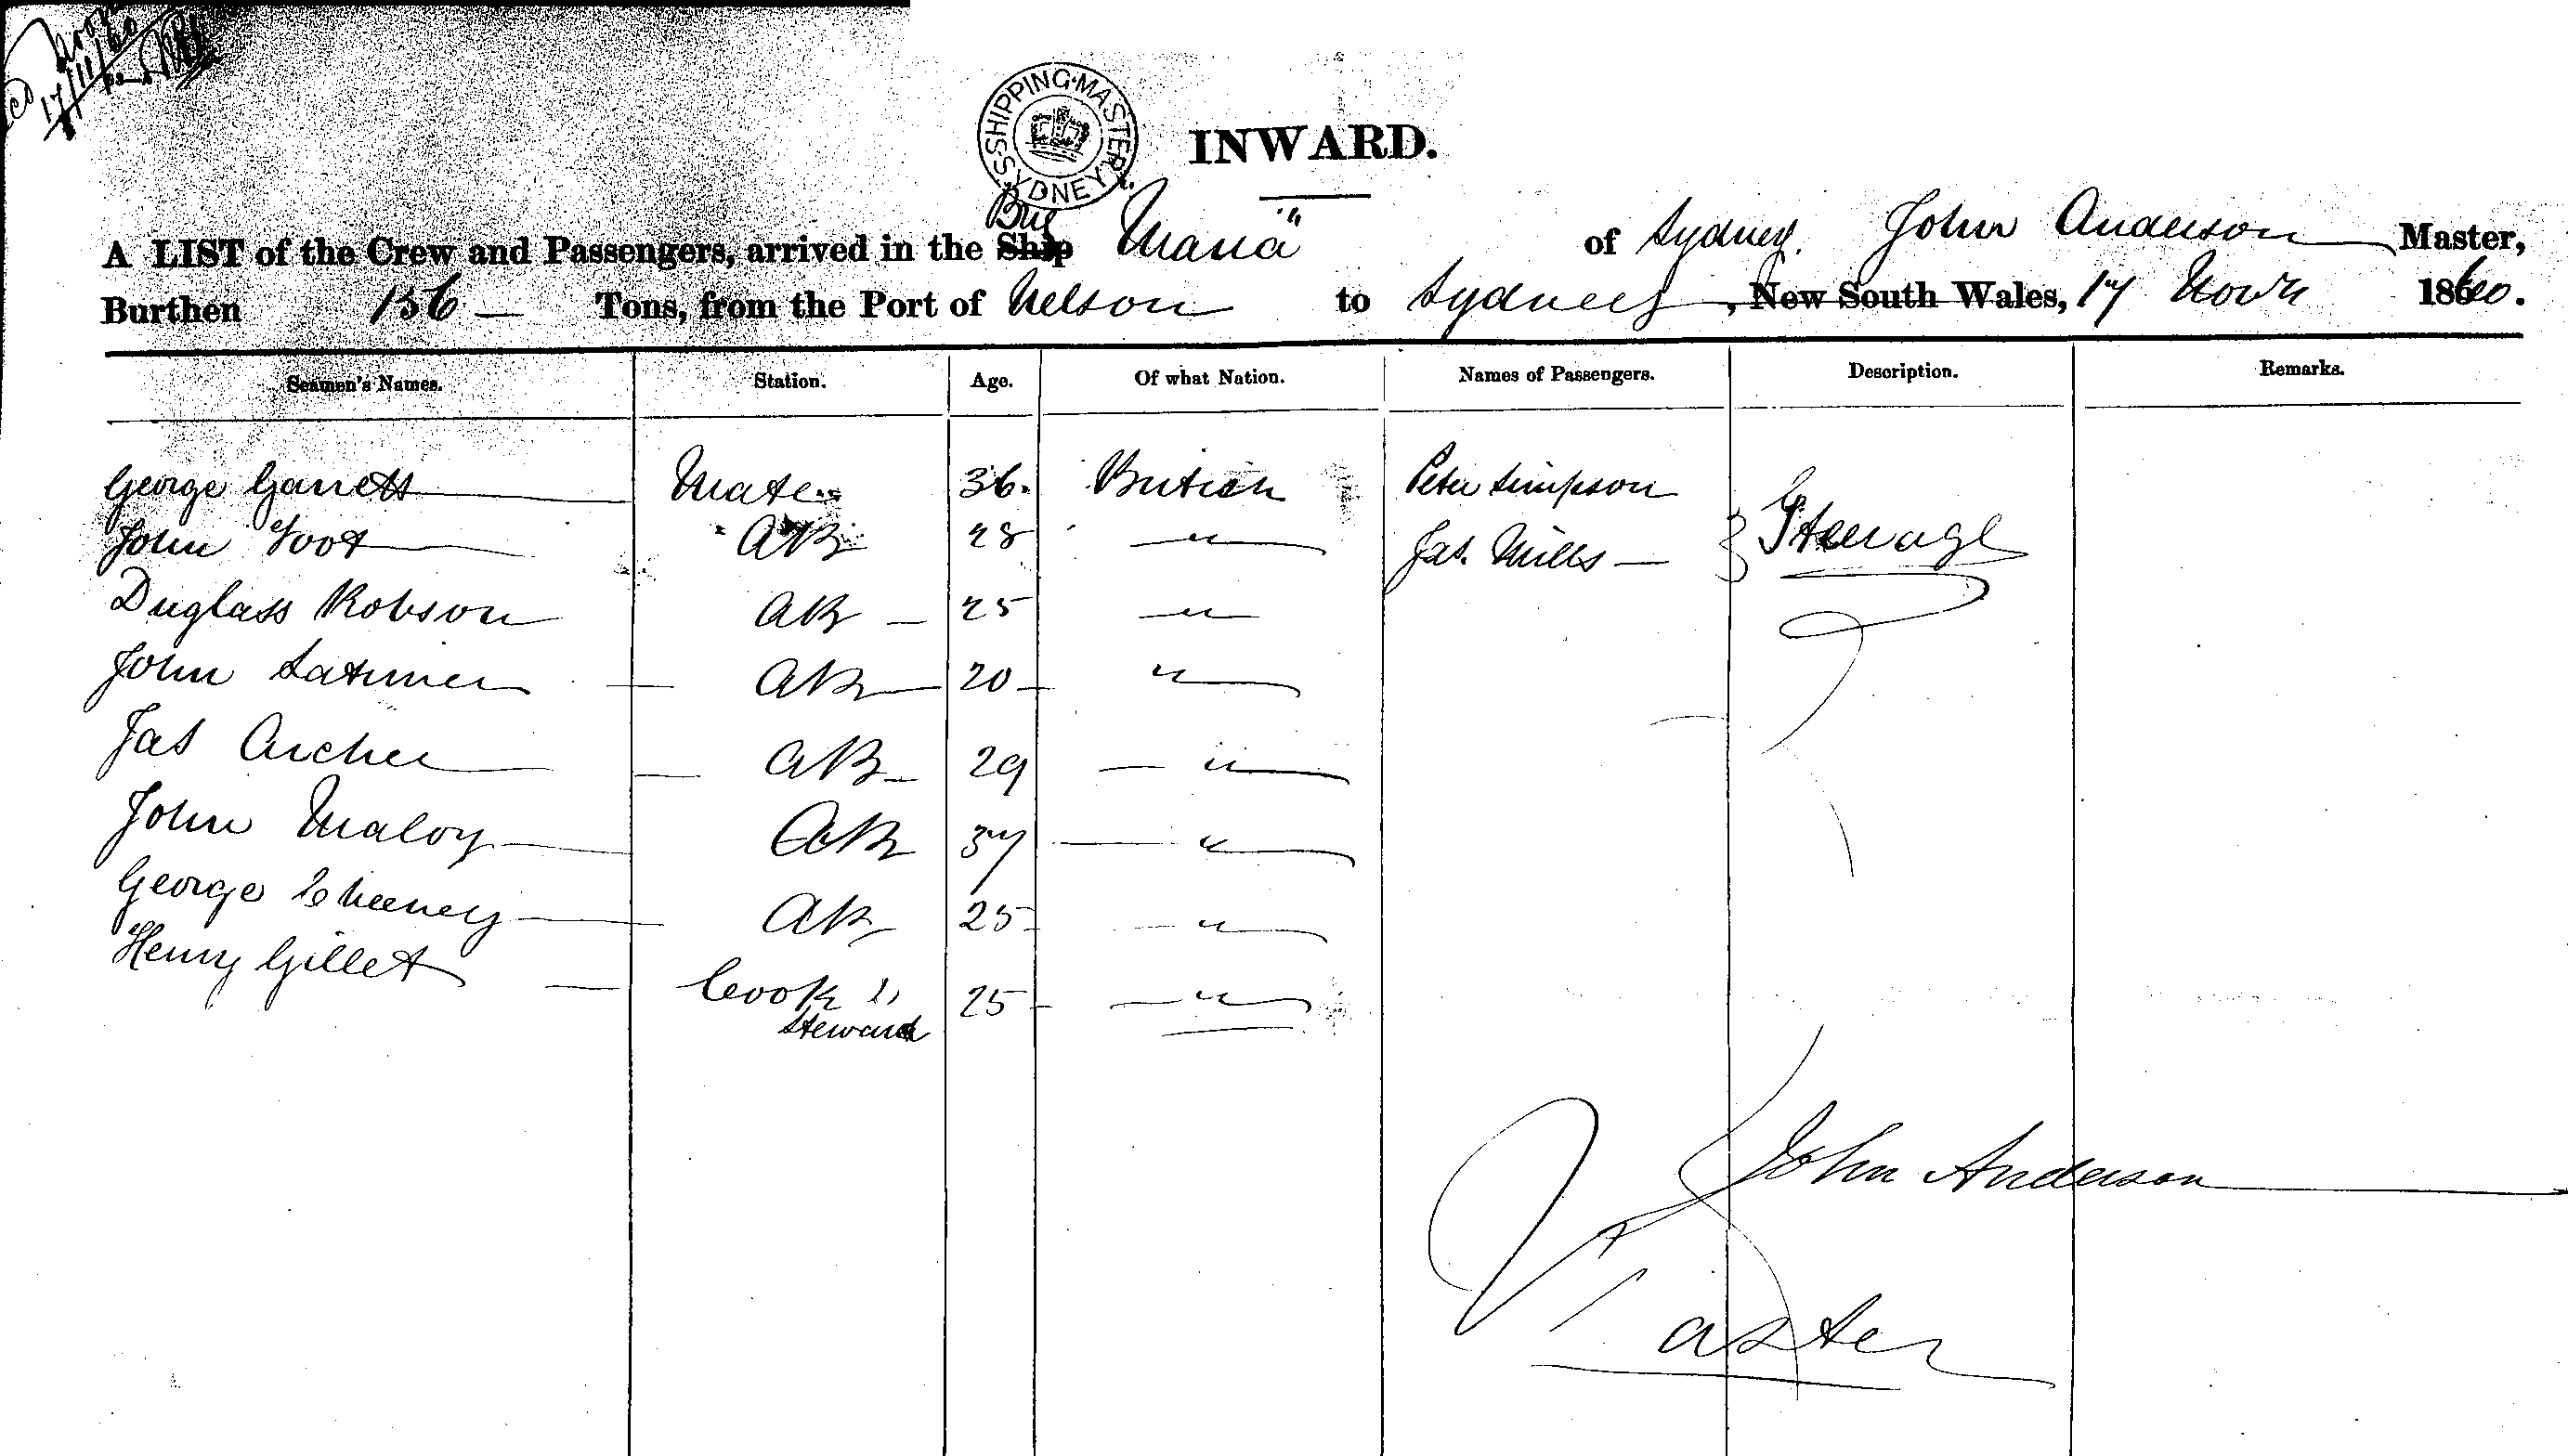 17/11/60
SHIPPING MASTER SYDNEY
INWARD.
A LIST of the Crew and Passengers, arrived in the Ship Brig "Maria" of Sydney. John Anderson Master,
Burthen 156 — Tons, from the Port of Nelson to Sydney, New South Wales, 17 Novr 1860.
Seamen's Names. Station. Age. Of what Nation. Names of Passengers. Description. Remarks.
George Garrett Mate 36. British Peter Simpson
John Foot AB 28 " Jas. Mills — } Steerage
Duglass Robson AB — 25 "
John Latimer — AB 20 — "
Jas Archer — AB 29 — "
John Maloy AB 37 — "
George Cheeney AB 25 — "
Henry Gillet — Cook & Steward 25 — "
John Anderson
Master